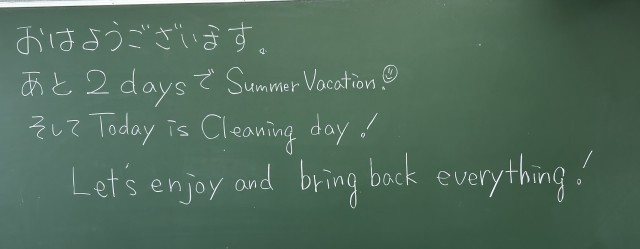 おはようございます。
あと2daysでSummer Vacation!☺
そして Today is Cleaning day!
Let's enjoy and bring back everything!